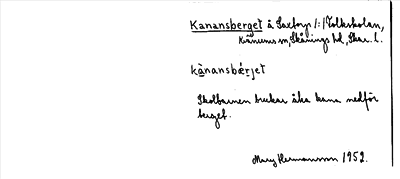 Kanansberget å Saxtorp /:/ Folkskolan,
Kånums sn, Skånings hd, Skar. l.
kànansbǽrjet
Skolbarnen brukar åka kana nedför
berget.
Mary Hermansson 1952.